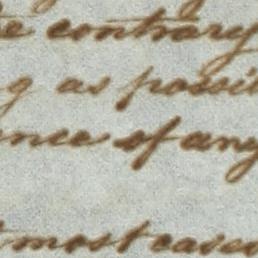 e contrary
g as possi
nce of any
most cases